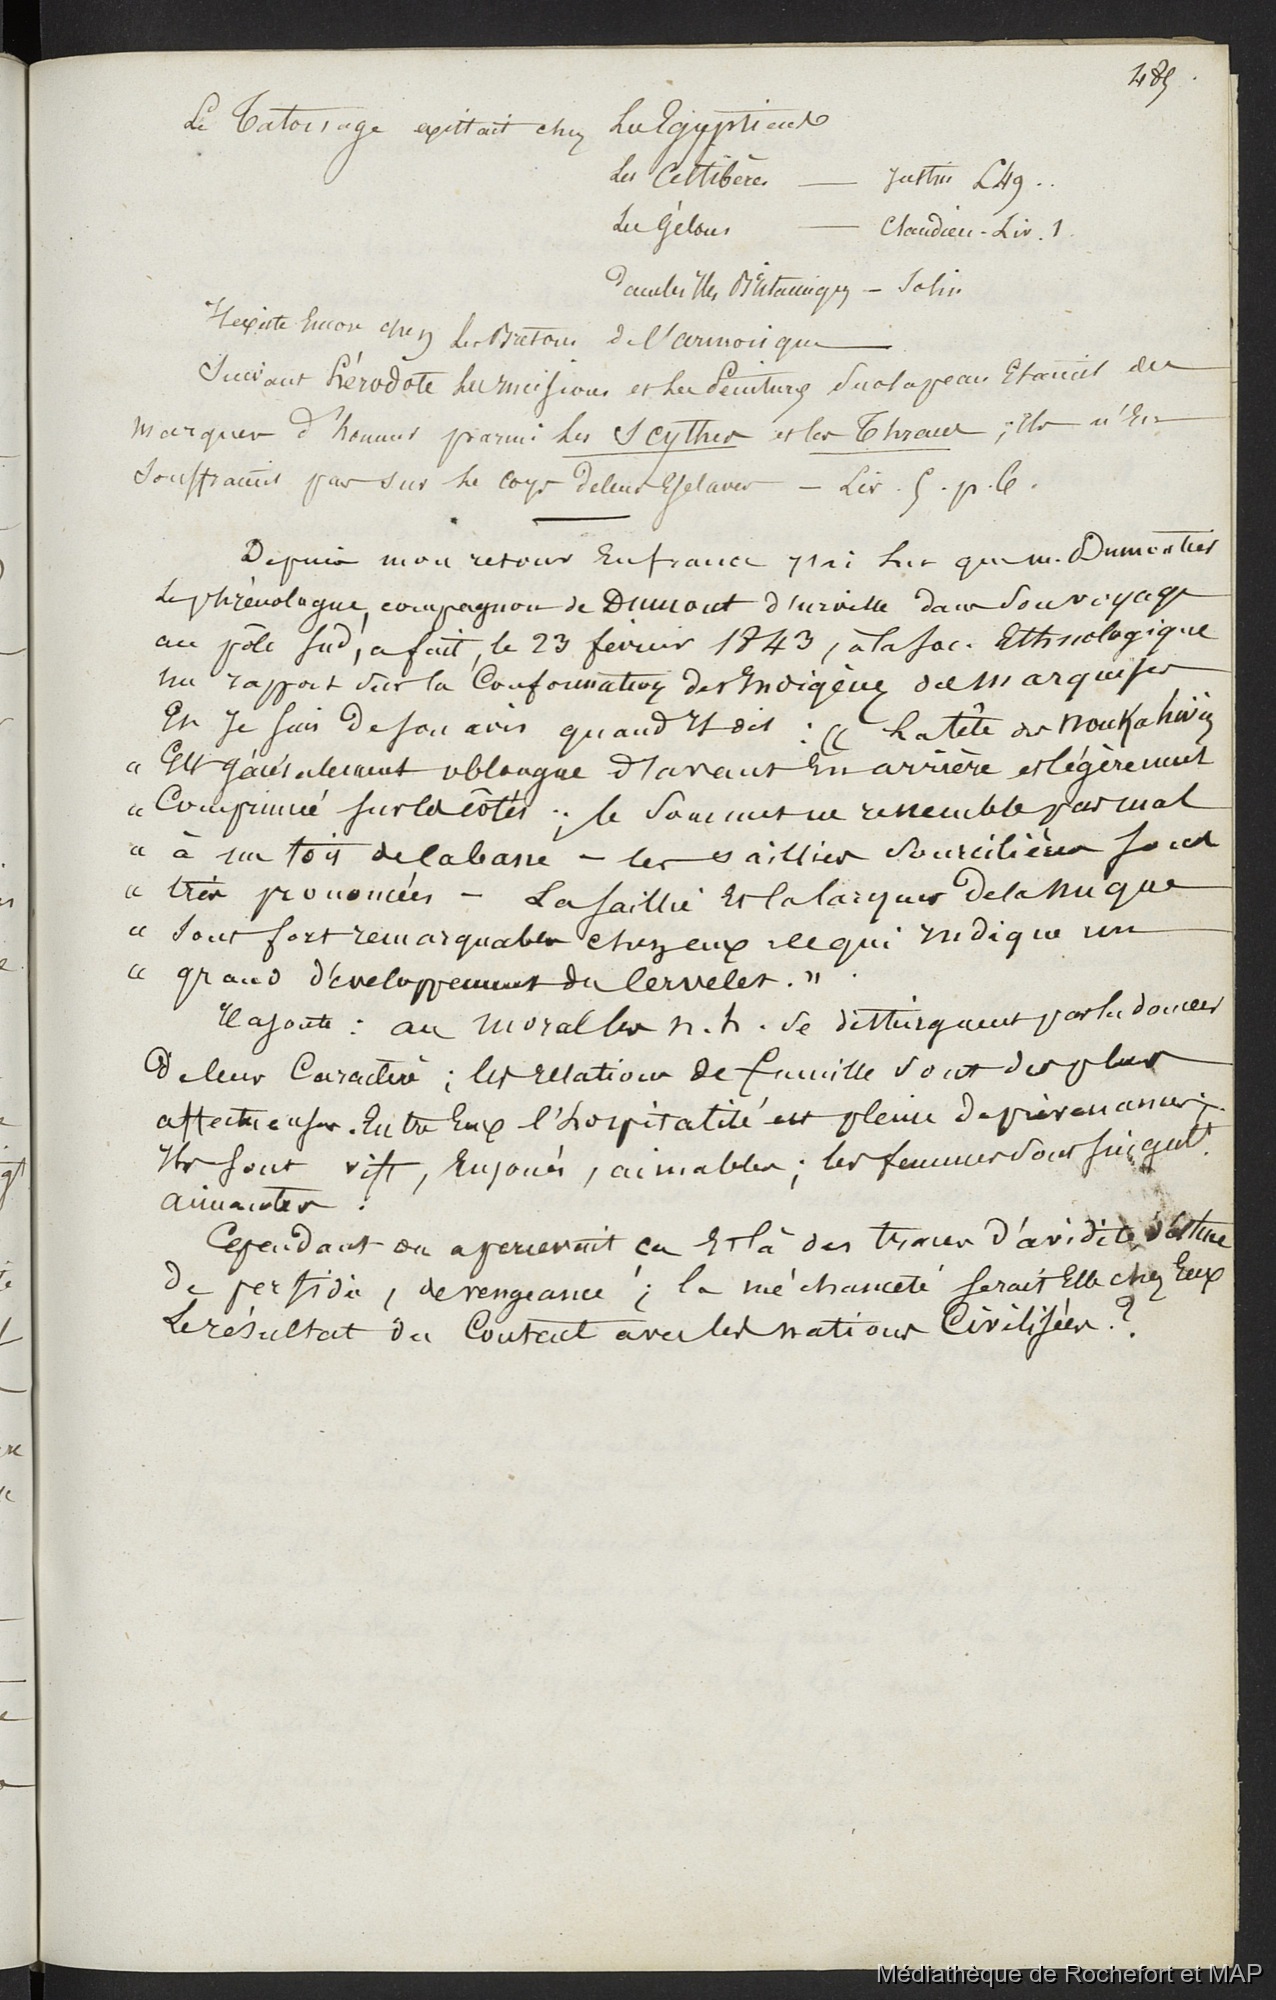 485
Le Tatouage existait chez les Egyptiens
les Celtibères — Justin L 49..
les Gélons — Claudien - Liv. 1
dans les Iles Britanniques — Solin
Il existe Encore chez les Bretons de l'armorique —
Suivant hérodote les incisions et les Peintures sur la peau Etaient des
marques d'honneur parmi les Scythes et les Thraces ; Ils n'En
Souffraient pas sur le corps de leurs Esclaves — Liv. 5. p. 6.
Depuis mon retour En france j'ai lu que m. Dumoutier
le phrénologue, compagnon de Dumont d'urville dans son voyage
au pôle sud, a fait, le 23 février 1843, à la soc. Ethnologique
un rapport sur la Conformation des Indigènes des marquises
Et Je suis de son avis quand Il dit : « La tête des noukahiviens
« Est généralement oblongue d'avant En arrière et légèrement
« Comprimée sur les côtés ; le sommet ne ressemble pas mal
« à un toit de la basse — les saillies sourcilières sont
« très prononcées — La saillie Et la largeur de la nuque
« sont fort remarquables chez eux ce qui Indique un
« grand développement du Cervelet. »
Il ajoute : au moral les n. h. se distinguent par la douceur
de leur Caractère ; les relations de famille sont des plus
affectueuses. Entre Eux l'hospitalité est pleine de prévenances ;
Ils sont vifs, Enjoués, aimables ; les femmes sont singult.
aimantes.
Cependant on apercevrait ça Et là des traces d'avidité d'astuce
de perfidie, de vengeance ; la méchanceté serait Elle chez Eux
Le résultat du Contact avec les nations Civilisées. ?
Médiathèque de Rochefort et MAP